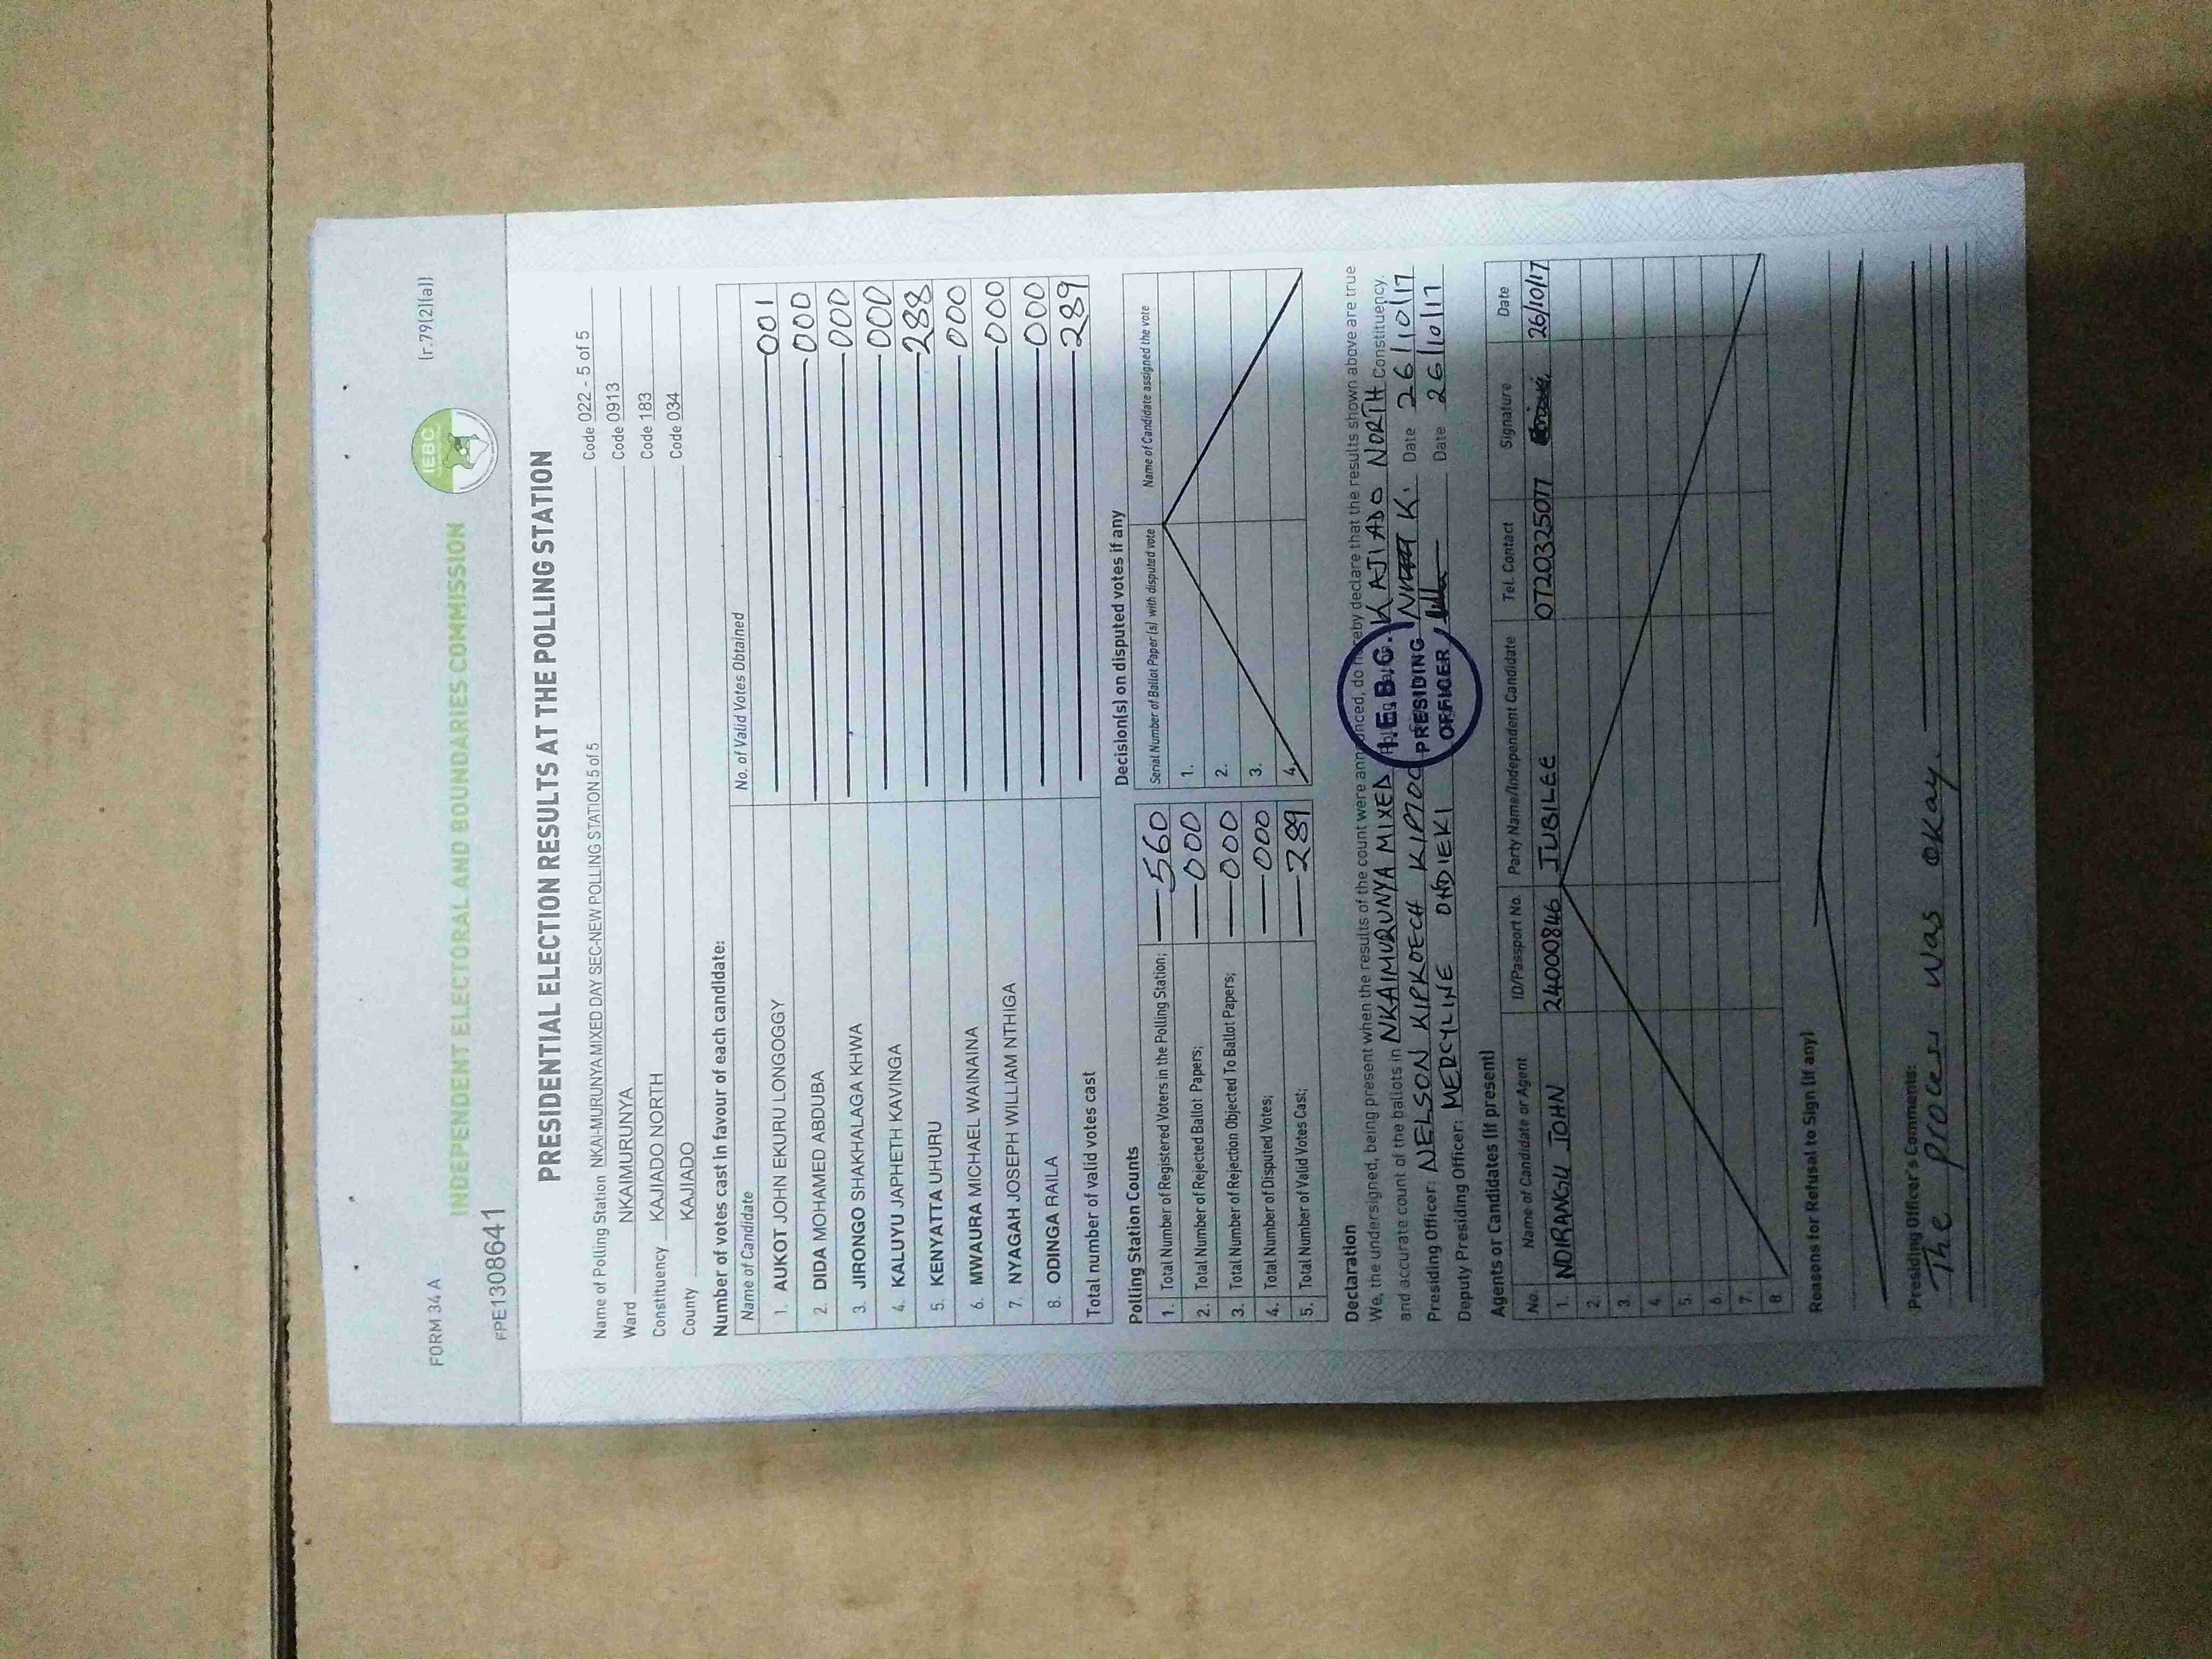 FORM 34 A
(r.79(2)(a))
IEBC
INDEPENDENT ELECTORAL AND BOUNDARIES COMMISSION
FPE1308641
PRESIDENTIAL ELECTION RESULTS AT THE POLLING STATION
Name of Polling Station NKAI-MURUNYA MIXED DAY SEC-NEW POLLING STATION 5 of 5 Code 022 - 5 of 5
Ward NKAIMURUNYA Code 0913
Constituency KAJIADO NORTH Code 183
County KAJIADO Code 034
Number of votes cast in favour of each candidate:
Name of Candidate No. of Valid Votes Obtained
1. AUKOT JOHN EKURU LONGOGGY 001
2. DIDA MOHAMED ABDUBA 000
3. JIRONGO SHAKHALAGA KHWA 000
4. KALUYU JAPHETH KAVINGA 000
5. KENYATTA UHURU 288
6. MWAURA MICHAEL WAINAINA 000
7. NYAGAH JOSEPH WILLIAM NTHIGA 000
8. ODINGA RAILA 000
Total number of valid votes cast 289
Polling Station Counts
1. Total Number of Registered Voters in the Polling Station; 560
2. Total Number of Rejected Ballot Papers; 000
3. Total Number of Rejection Objected To Ballot Papers; 000
4. Total Number of Disputed Votes; 000
5. Total Number of Valid Votes Cast; 289
Decision(s) on disputed votes if any
Serial Number of Ballot Paper(s) with disputed vote Name of Candidate assigned the vote
1.
2.
3.
4.
Declaration
We, the undersigned, being present when the results of the count were announced, do hereby declare that the results shown above are true
and accurate count of the ballots in NKAIMURUNYA MIXED KAJIADO NORTH Constituency.
Presiding Officer: NELSON KIPKOECH KIPTOO K. Date 26/10/17
Deputy Presiding Officer: MERCYLINE ONDIEKI Date 26/10/17
I.E.B.C.
PRESIDING
OFFICER
Agents or Candidates (if present)
No. Name of Candidate or Agent ID/Passport No. Party Name/Independent Candidate Tel. Contact Signature Date
1. NDIRANGU JOHN 24000846 JUBILEE 0720325077 26/10/17
2.
3.
4.
5.
6.
7.
8
Reasons for Refusal to Sign (if any)
Presiding Officer's Comments:
The process was okay.